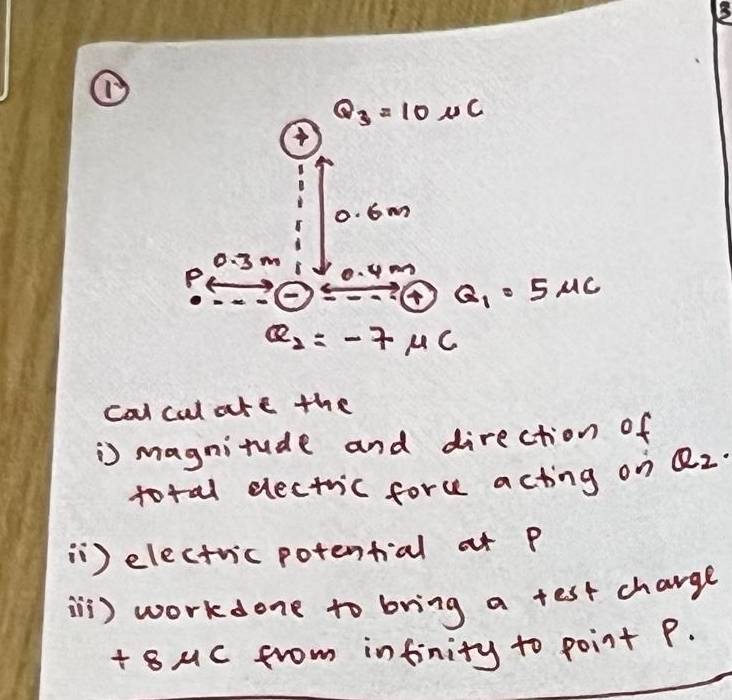 3
1
Q₃ = 10 μC
0.6m
0.3 m
0.4m
P
Q₁ = 5 μC
Q₂ = -7 μC
Calculate the
i) magnitude and direction of
total electric force acting on Q₂.
ii) electric potential at P
iii) workdone to bring a test charge
+8 μC from infinity to point P.